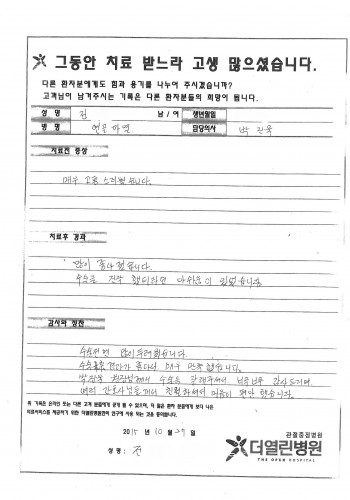 그동안 치료 받느라 고생 많으셨습니다.
다른 환자분에게도 힘과 용기를 나누어 주시겠습니까?
고객님이 남겨주시는 기록은 다른 환자분들의 희망이 됩니다.
성 명 김 남 / 여 생년월일
병 명 연골 파열 담당의사 박진욱
치료전 증상
매우 고통 스러웠습니다.
치료후 경과
많이 좋아졌습니다.
수술을 진작 했더라면 아쉬움이 있었습니다.
감사와 칭찬
수술전엔 많이 두려웠습니다.
수술 결과가 좋아서 매우 만족했습니다.
수술을 잘해주셔서 너무너무 감사드리며
간호사님들께서 친절하셔서 마음이 편안했습니다.
위 기록은 온라인 또는 다른 고객 분들에게 공개 될 수 있으며, 더 많은 환자 분들에게 보다 나은
의료서비스를 제공하기 위한 더열린병원만의 연구에 사용 되는 것을 동의합니다.
2015 년 10 월 29 일
성 명 : 김
관절중점병원
더열린병원
THE OPEN HOSPITAL